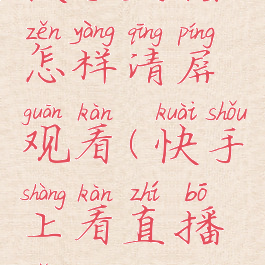 zěn yàng qīng píng
怎样清屏
guān kàn kuài shǒu
观看(快手
shàng kàn zhí bō
上看直播